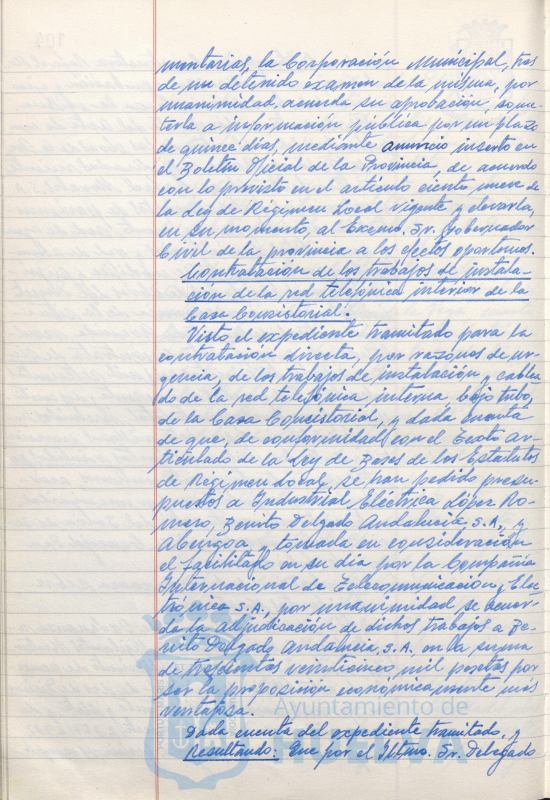 mentarias, la Corporación Municipal, tras
de un detenido examen de la misma, por
unanimidad, acuerda su aprobación, some-
terla a información pública por un plazo
de quince días, mediante anuncio inserto en
el Boletín Oficial de la Provincia, de acuerdo
con lo previsto en el artículo ciento nueve de
la Ley de Régimen Local vigente y elevarla,
en su momento, al Excmo. Sr. Gobernador
Civil de la provincia a los efectos oportunos.
Contratación de los trabajos de instala-
ción de la red telefónica interior de la
Casa Consistorial.
Visto el expediente tramitado para la
contratación directa, por razones de ur-
gencia, de los trabajos de instalación y cablea-
do de la red telefónica interna bajo tubo,
de la Casa Consistorial, y dada cuenta
de que, de conformidad con el texto ar-
ticulado de la Ley de Bases de los Estatutos
de Régimen Local, se han pedido presu-
puestos a Industrial Eléctrica López Ro-
mero, Benito Delgado Andalucía, S.A., y
Abengoa y tomada en consideración
el facilitado en su día por la Compañía
Internacional de Telecomunicación y Elec-
trónica S.A. por unanimidad se acuer-
da la adjudicación de dichos trabajos a Be-
nito Delgado Andalucía, S.A. en la suma
de trescientas veinticinco mil pesetas por
ser la proposición económicamente más
ventajosa.
Ayuntamiento de
Dada cuenta del expediente tramitado, y
HUELVA
Resultando: Que por el Iltmo. Sr. Delegado